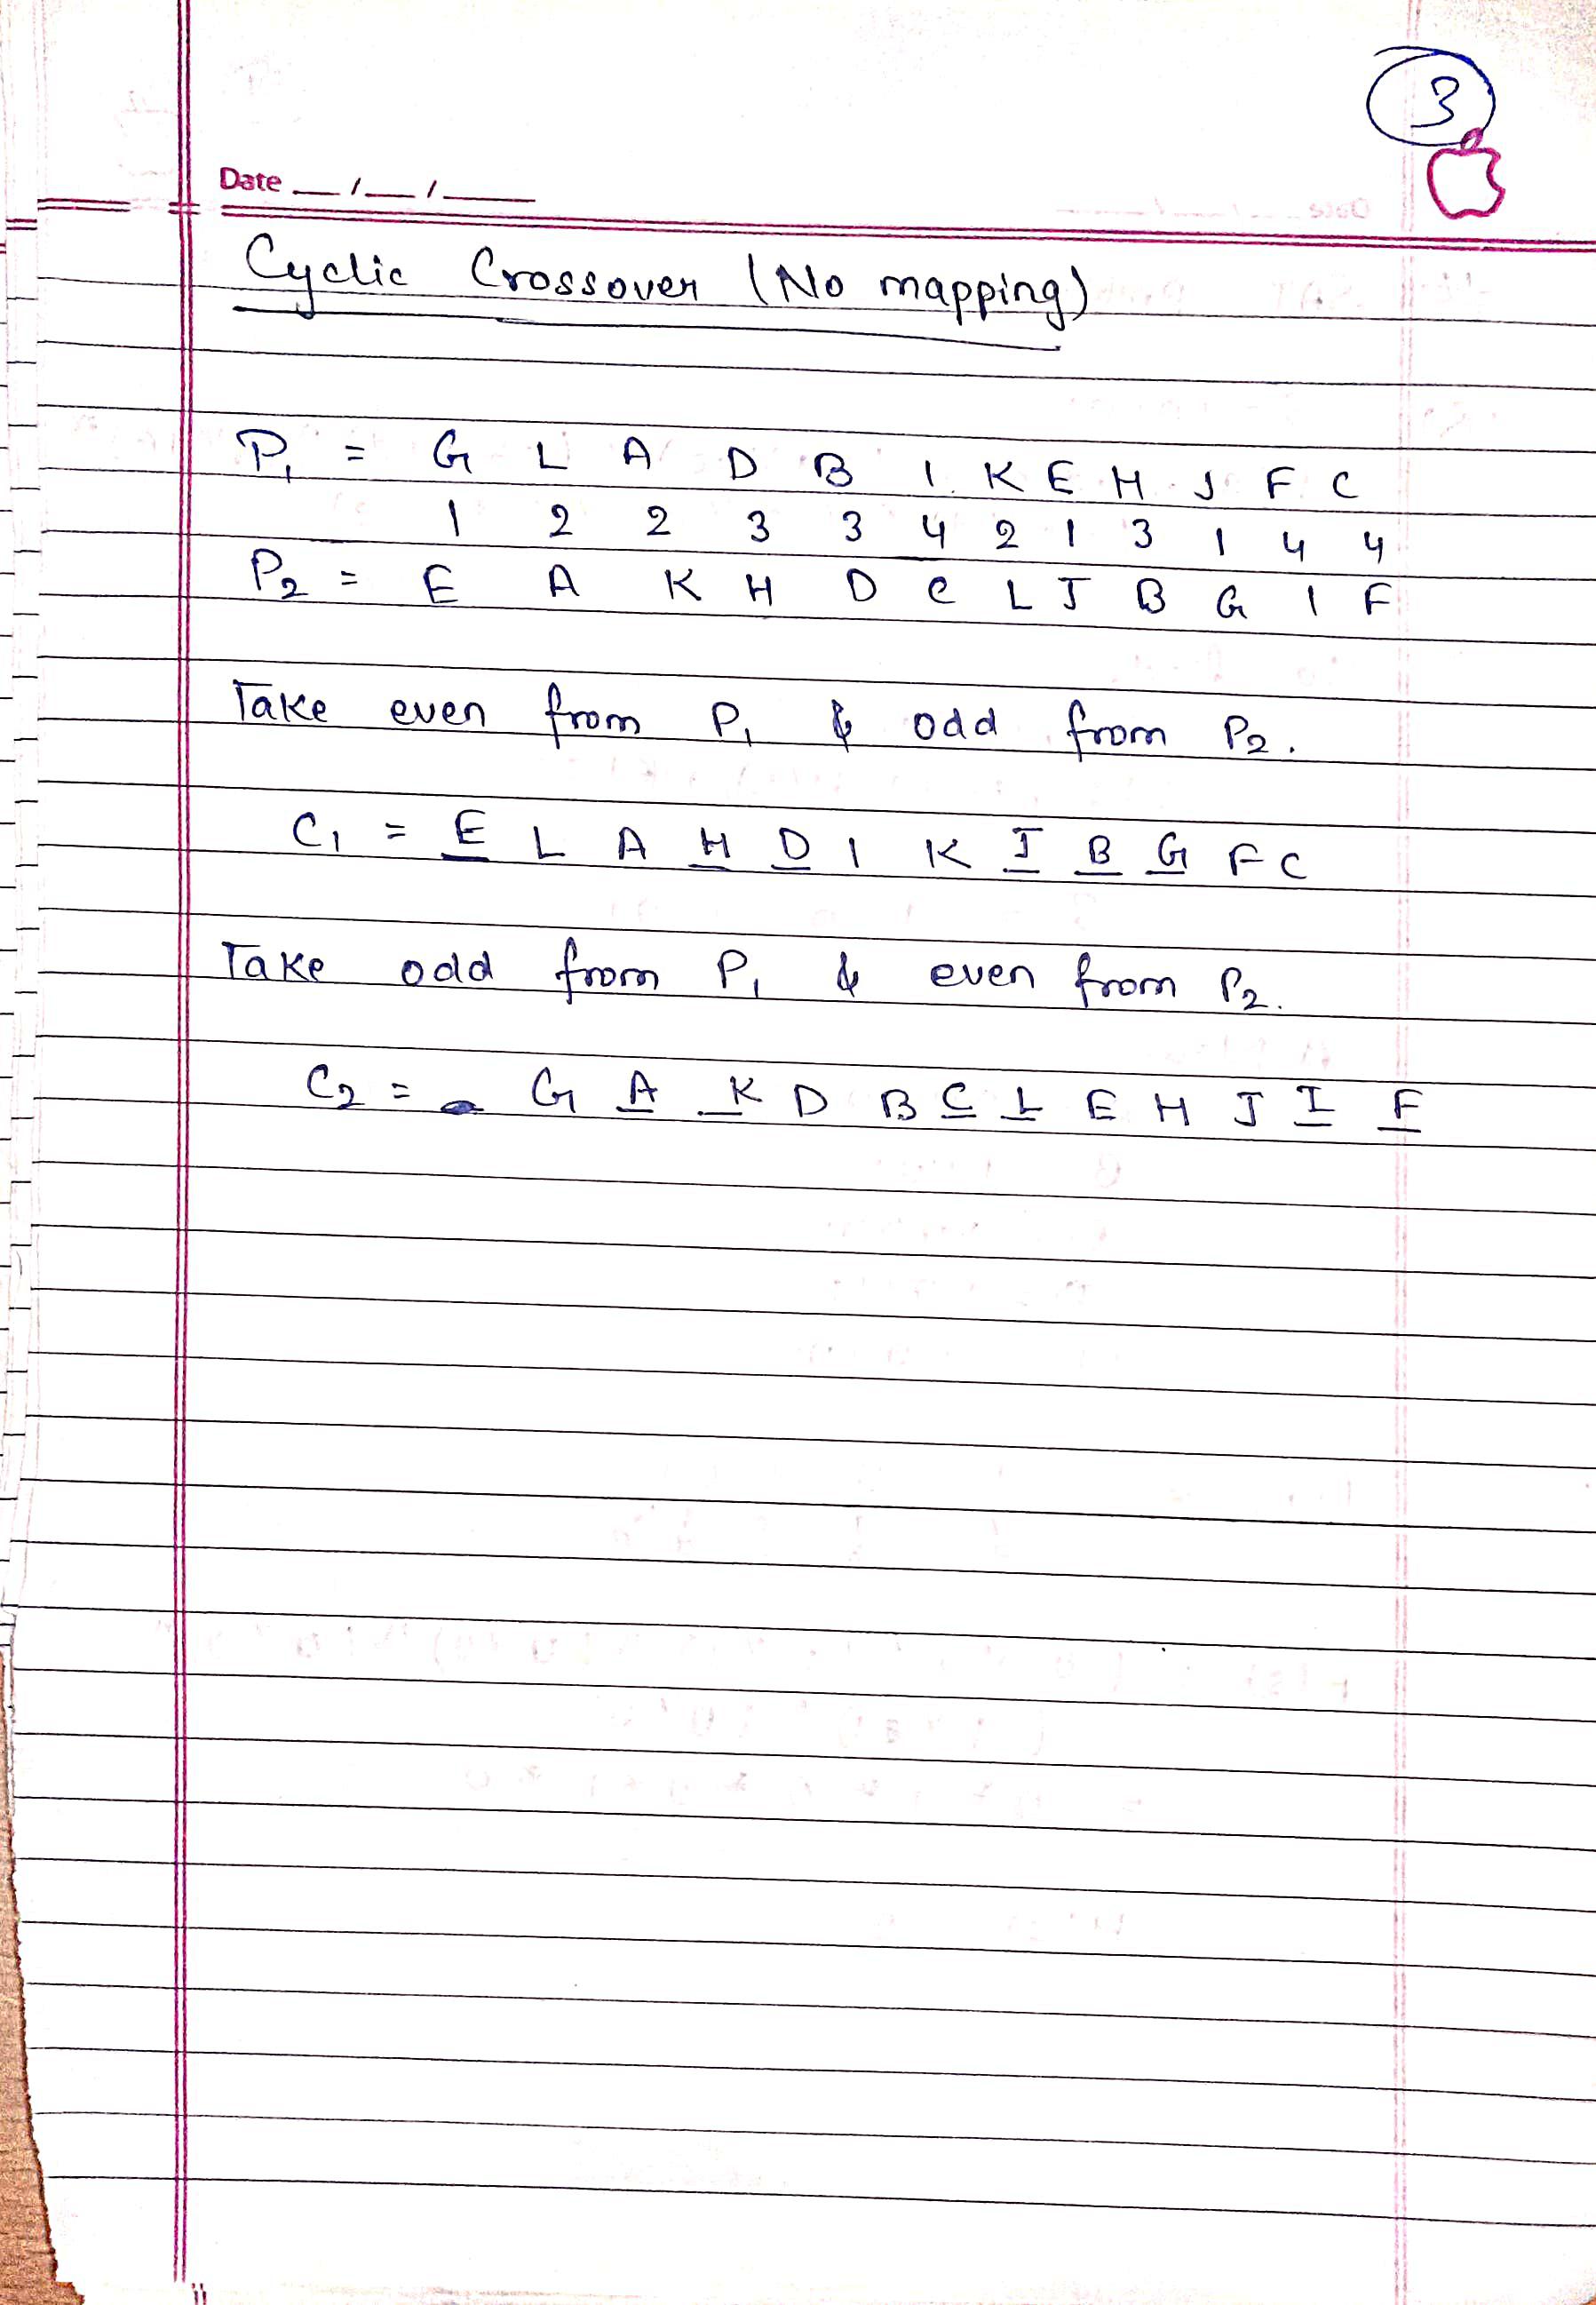 3
Date __/__/____
Cyclic Crossover (No mapping)
P₁ = G L A D B I K E H J F C
1 2 2 3 3 4 2 1 3 1 4 4
P₂ = E A K H D C L J B G I F
Take even from P₁ & odd from P₂.
C₁ = E L A H D I K J B G F C
Take odd from P₁ & even from P₂.
C₂ = G A K D B C L E H J I F